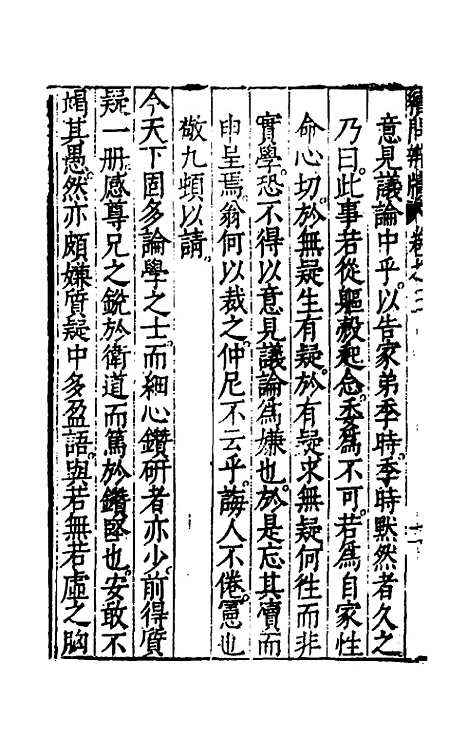 意見議論中乎以告家弟季時季時默然者久之
乃曰此事若從軀殼起念委為不可若為自家性
命心切於無疑生有疑於有疑求無疑何往而非
實學恐不得以意見議論為嫌也於是忘其瀆而
申呈焉翁何以裁之仲尼不云乎誨人不倦憲也
敬九頓以請
今天下固多論學之士而細心鑽研者亦少前得質
疑一册感尊兄之銳於衛道而篤於鑽堅也安敢不
竭其愚然亦頗嫌質疑中多盈語與若無若虛之胸